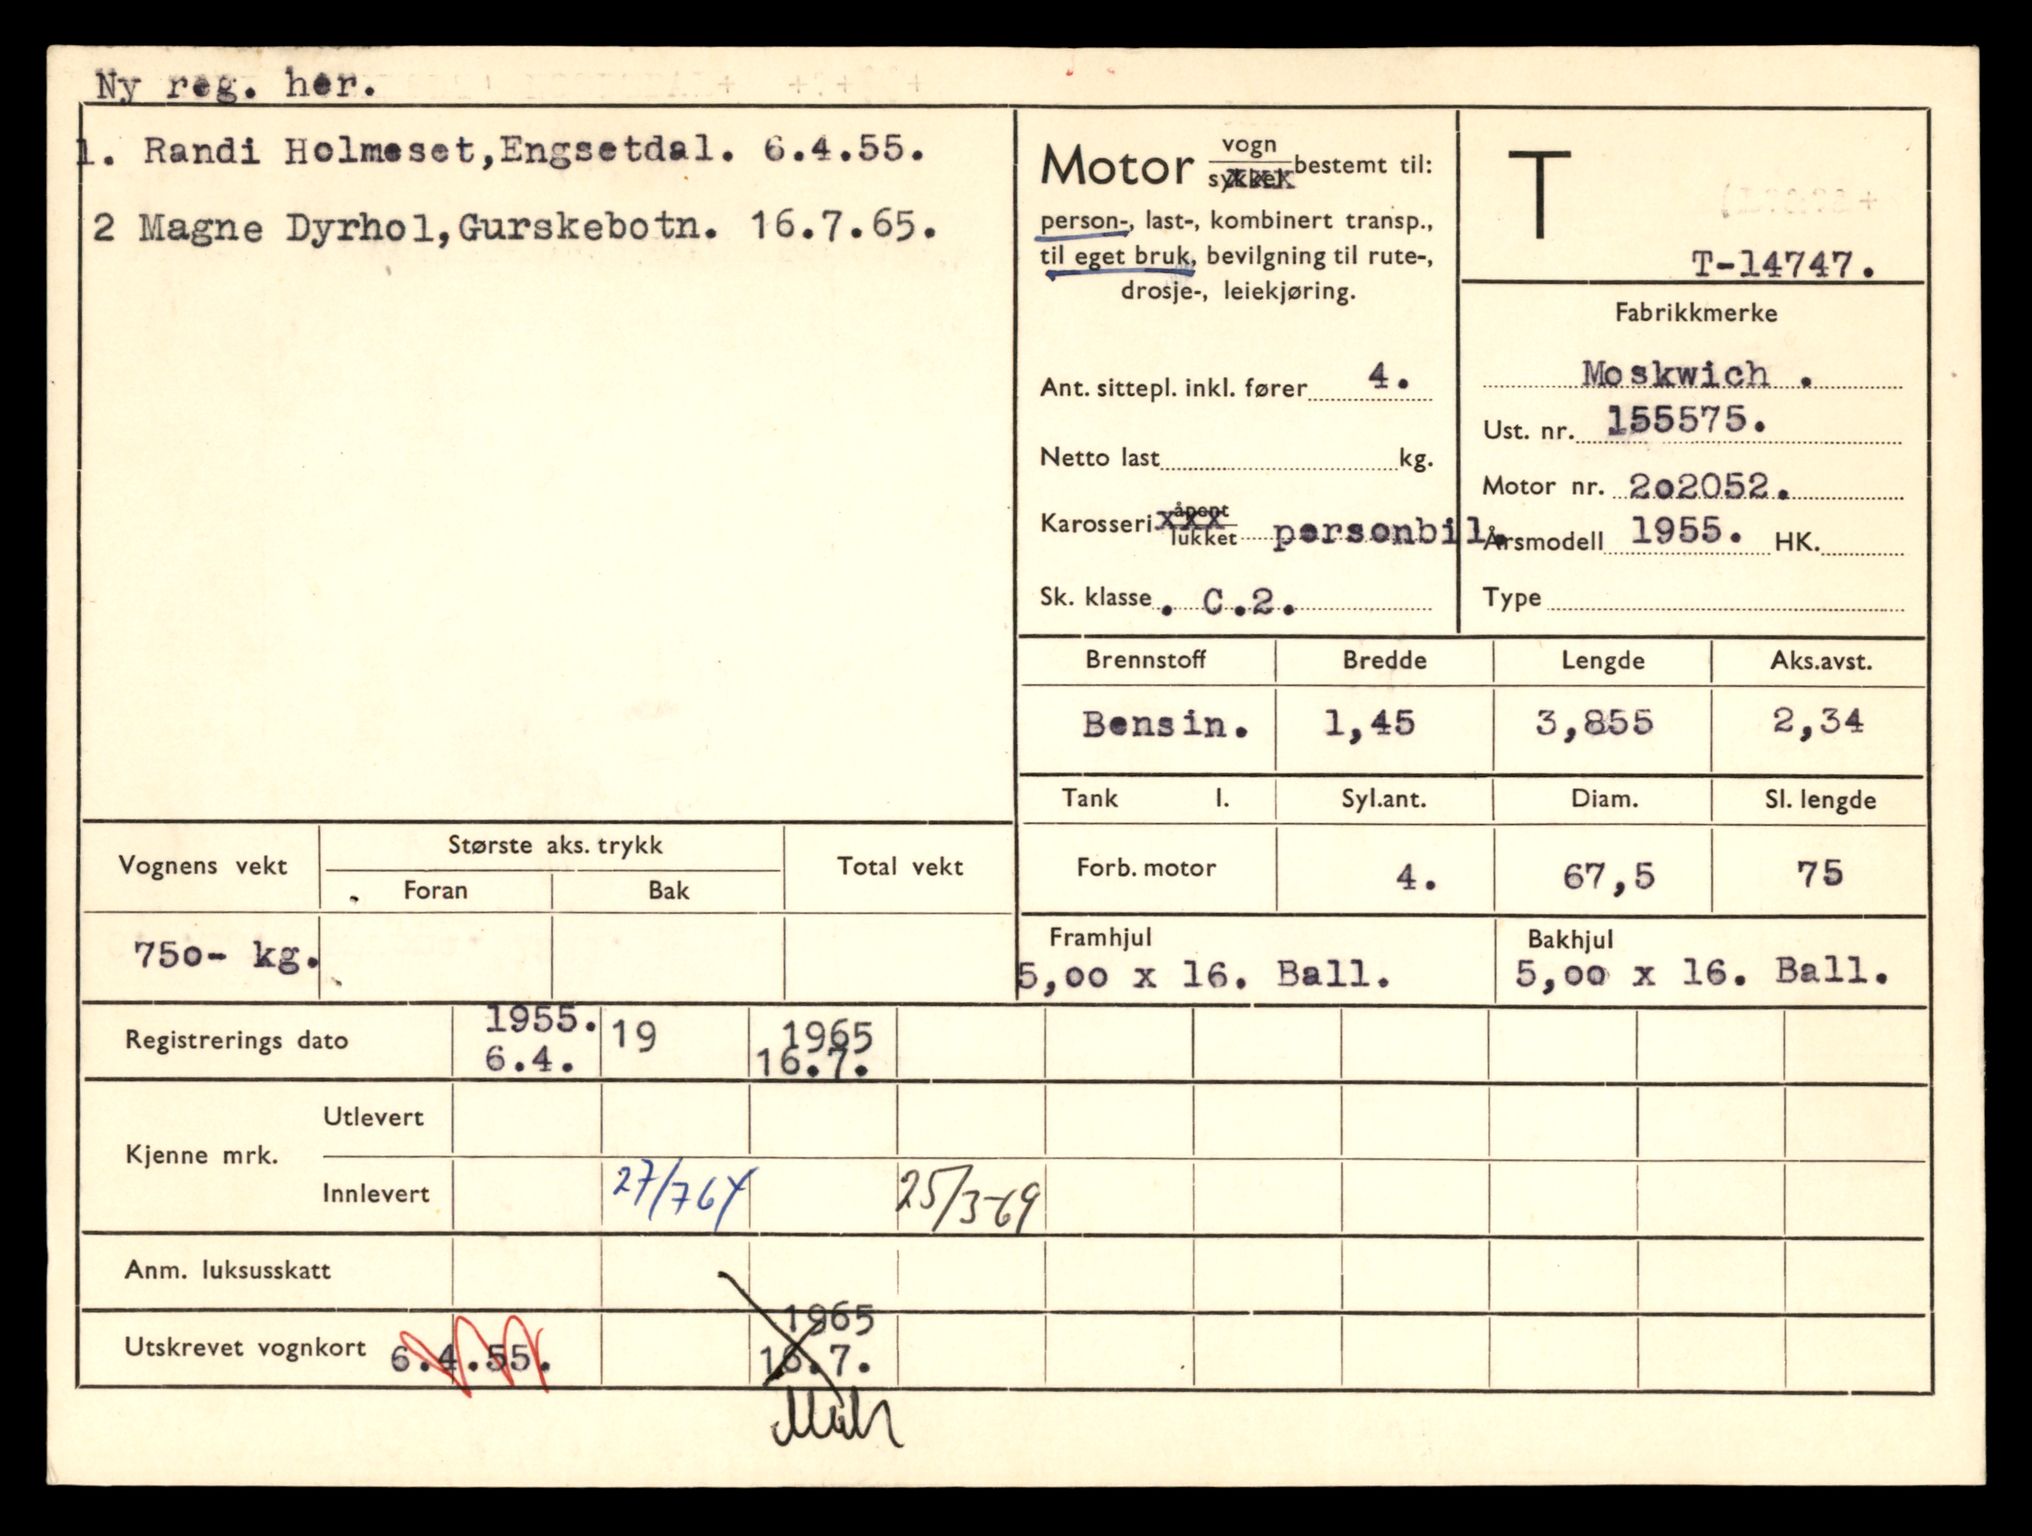 Ny reg. her.
1. Randi Holmeset,Engsetdal. 6.4.55.
2 Magne Dyrhol,Gurskebotn. 16.7.65.
Motor vogn
sykkel bestemt til:
person-, last-, kombinert transp.,
til eget bruk, bevilgning til rute-,
drosje-, leiekjøring.
Ant. sittepl. inkl. fører 4.
Netto last kg.
Karosseri åpent
lukket personbil.
Sk. klasse . C.2.
T
T-14747.
Fabrikkmerke
Moskwich .
Ust. nr. 155575.
Motor nr. 2o2052.
Årsmodell 1955. HK.
Type
Brennstoff Bredde Lengde Aks.avst.
Bensin. 1,45 3,855 2,34
Tank l. Syl.ant. Diam. Sl. lengde
Forb. motor 4. 67,5 75
Framhjul Bakhjul
5,oo x 16. Ball. 5,oo x 16. Ball.
Vognens vekt Største aks. trykk Total vekt
Foran Bak
75o- kg.
Registrerings dato 1955. 19 1965
6.4. 16.7.
Kjenne mrk. Utlevert
Innlevert 27/7 64 25/3-69
Anm. luksusskatt
1965
Utskrevet vognkort 6.4.55. 16.7.